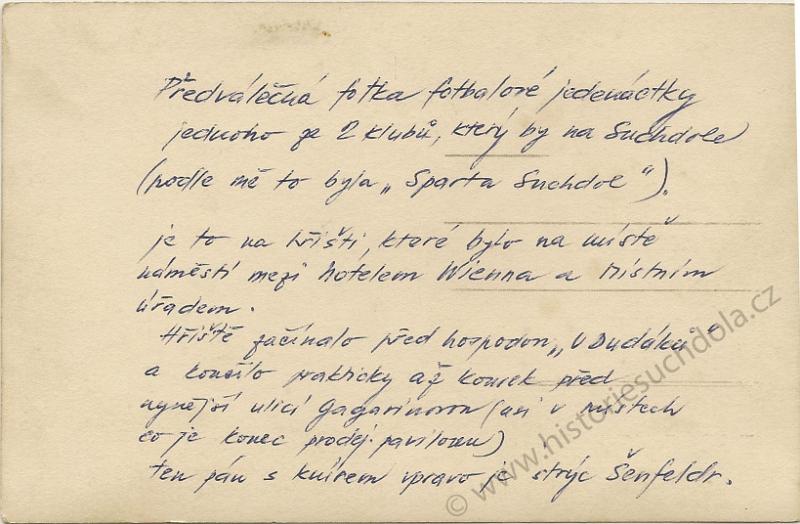 Předválečná fotka fotbalové jedenáctky
jednoho ze 2 klubů, který by na Suchdole
(podle mě to byla „Sparta Suchdol").
je to na hřišti, které bylo na místě
náměstí mezi hotelem Wienna a Místním
úřadem.
Hřiště začínalo před hospodou „U Dudáka"
a končilo prakticky až kousek před
nynější ulicí Gagarinovou (asi v místech
co je konec prodej. pavilonu)
ten pán s knírem vpravo je strýc Šenfeldr.
© www.historiesuchdola.cz